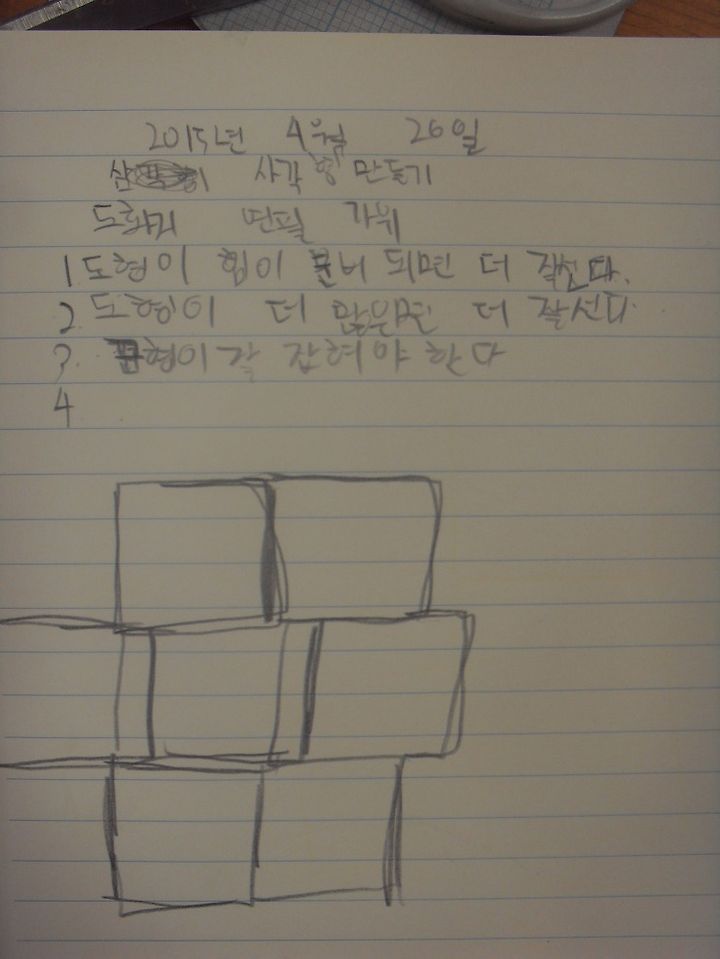 2015년 4월 26일
삼 사각형 만들기
도화지 연필 가위
1 도형이 힘이 분버 되면 더 잘선다.
2 도형이 더 많으면 더 잘선다.
3. 형이 잘 잡혀야 한다
4